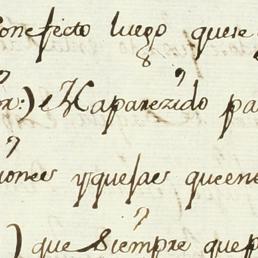 Conefecto luego quese
) el Xaparezido pa
iones yquelas queene
) que Siempre quep